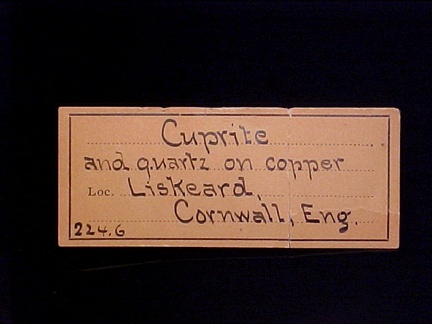 Cuprite
and quartz on copper
Loc. Liskeard,
Cornwall, Eng.
224.6